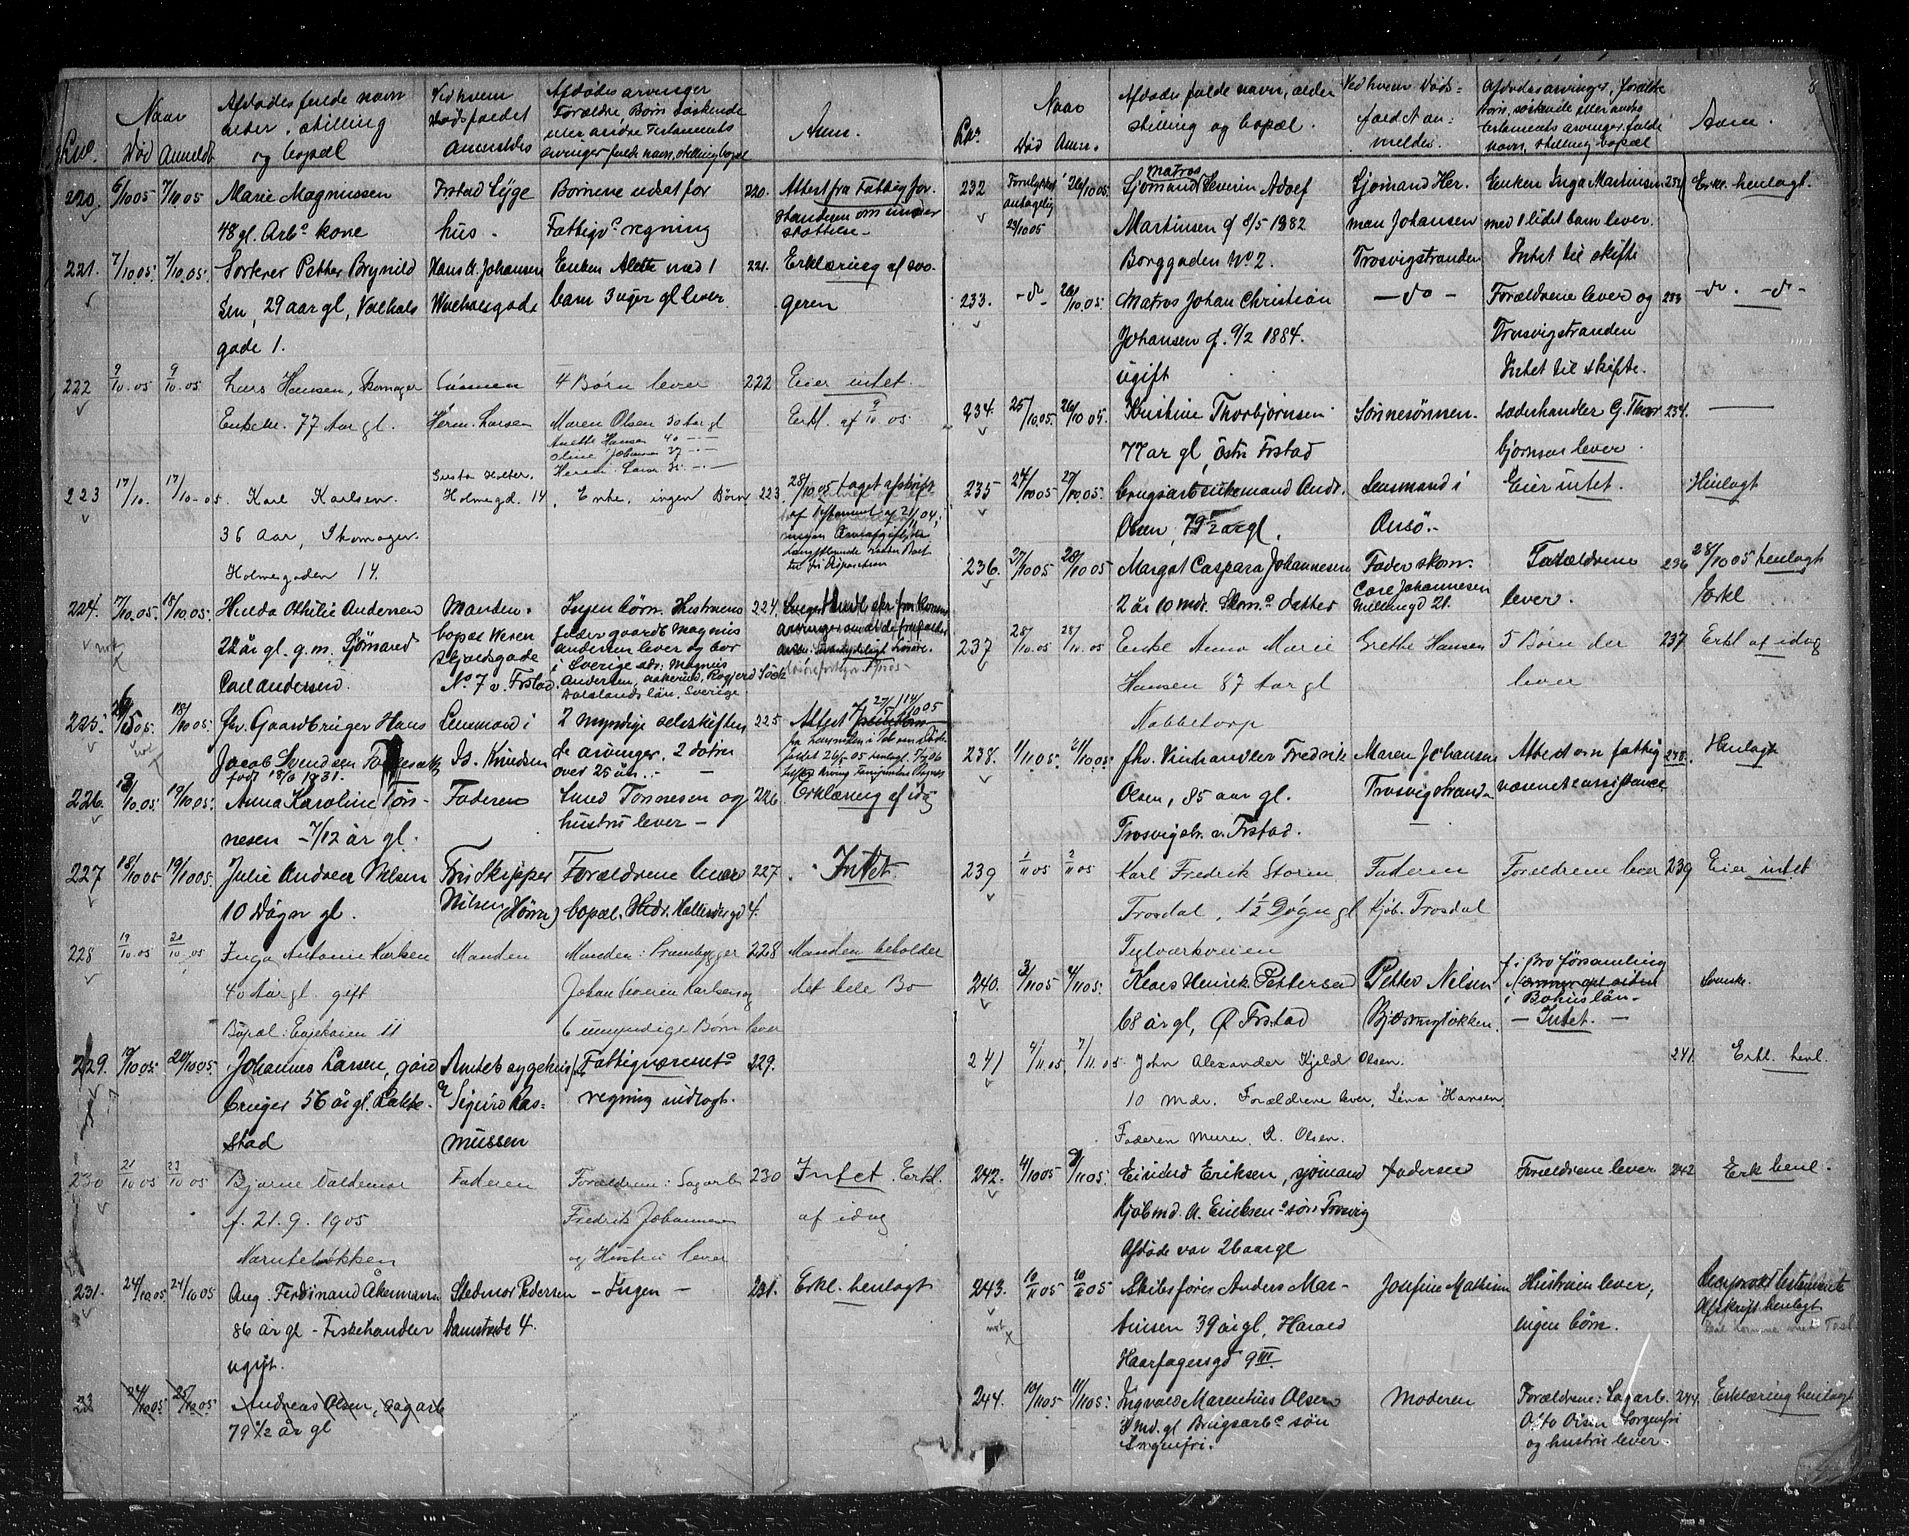 Lno.
Naar
Død Anmeldt
Afdødes fulde navn
alder, stilling
og bopæl
Ved hvem
dødsfaldet
anmeldes
Afdødes arvinger
Forældre, Børn Søskende
eller andre Testaments
arvinger fulde navn, stilling bopæl
Anm.
220. 6/10 05 7/10 05 Marie Magnussen Frstad Syge Børnene udsat for 220. Attest fra Fattigfor-
48 gl. Arb.s kone hus - Fattigv.s regning standeren om under
støttelse -
221. 7/10 05. 7/10 05. Petter Brynild Hans A. Johansen Enken Alette med 1 221. Erklæring af svo-
sen, 29 aar gl, Valhals Walhalsgade barn 3 uger gl lever. geren
gade 1.
222 9/10.05 9/10.05 Lars Hansen, Skomager Sønnen 4 Børn lever 222 Eier intet.
Enkem. 77 Aar gl. Herm. Larsen Maren Olsen 50 Aar gl Erkl. af 9/10 05.
Anette Hansen 40 - -
Oline Johansen 37 - -
Herm. Larsen 35 - -
223 17/10. 17/10-05. Karl Karlsen. Holmegd. 14. Enke, ingen Børn 223. 28/10.05 taget afskrift
36 Aar, Skomager. af Testament af 21/11 04;
Holmegaden 14.
224. 7/10.05. 18/10.05. Hulda Othilie Andersen Manden. Ingen børn. Hustruens 224.
22 år gl. g.m. Sjømand bopæl Weren fader gaardb Magnus
Carl Andersen. skjoldsgade Andersen lever og bor
No 7 v. Frstad. i Sverige adr: Magnus
Andersen,
Dalslands län, Sverige
225. 18/10 05. fhv. Gaardbruger Hans Lensmand i 2 myndige selvskiftende 225. Attest
Jacob Svendsen Is. Knudsen arvinger. 2 døtre
født 18/3 1831. over 25 år. -
226. 18/10.05 19/10 05. Anna Karoline Tøn- Faderen Lund Tønnesen og 226. Erklæring af idag
nesen - 7/12 år gl. hustru lever -
227 18/10 05 19/10 05. Julie Andrea Nilsen Fru Skipper Forældrene lever 227. Intet.
10 Døgn gl. Nilsen bopæl. Nedr. Kallerødgd 4.
228 19/10.05 20/10.05 Inga Antonie Karlsen Manden Manden: Prambygger 228 Manden beholder
40 Aar gl. gift Johan Severin Karlsen og det hele Bo
Bopæl: Enjekaien 11 6 umyndige Børn lever
229. 19/10 05. 20/10 05 Johannes Larsen, gård Amtssygehus Fattigvæsenets 229.
bruger 56 år gl. Rakke- v Sigurd Ras- regning indlagt.
stad mussen
230 21/10 05 23/10 05 Bjarne Valdemar Faderen Forældrene: Sagarb. 230 Intet. Erkl.
f. 21. 9. 1905 Fredrik Johannesen af idag
Narnteløkken og Hustru lever
231. 24/10 05 24/10 05 Aug. Ferdinand Åkermann Stedmor Pedersen - Ingen - 231. Erkl. henlagt
86 år gl - Fiskehandler Damstrøde 4.
ugift.
23 24/10 05 25/10 05 Andreas Olsen, sagarb
79 1/2 år gl
Lno
Naar
Død Anm.
Afdødes fulde navn, alder
stilling og bopæl.
Ved hvem Døds-
faldet an-
meldes.
Afdødes arvinger, forældre
børn, søskende eller andre
testaments arvinger fulde
navn, stilling bopæl
Anm.
232 Forulykket 26/10 05. matros Sjømand Severin Adolf Sjømand Her- Enken Inga Martinsen 232 Erkl. henlagt.
antagelig Martinsen f 8/5 1882 man Johansen med 1 lidet barn lever.
23/10 05 Borggaden No 2. Trosvigstranden Intet til skifte
233. -do- 26/10.05. Matros Johan Christian -do- Forældrene lever og 233 -do. -do-
Johansen f. 9/2 1884. Trosvigstranden
ugift Intet til skifte.
234. 25/10.05. 26/10 05. Kristine Thorbjørnsen. Sønnesønnen. Læderhandler G. Thor 234.
77 ar gl, Östre Frstad bjørnsen lever.
235 24/10 05 27/10.05. brugsarb enkemand Andr. Lensmand i Eier intet. Henlagt
Olsen, 79 1/2 ar gl. Onsø. -
236. 27/10 05 28/10 05 Margot Caspara Johannesen Fader skom. Forældrene 236 28/10 05 henlagt
2 år 10 mdr. Skom.s datter Carl Johannesen lever. Erkl
Mellemgd 21.
237 28/10.05 28/10.05 Enke Anna Marie Grethe Hansen 5 Børn der 237. Erkl af idag
Hansen 87 Aar gl lever
Nabbetorp
238. 1/11 05. 2/11 05. fhv. Vinhandler Fredrik Maren Johansen Attest om fattig 238. Henlagt
Olsen, 85 aar gl. Trosvigstrand væsenets assistance
Trosvigstr. v. Frstad.
239 1/11 05 2/11 05 Karl Fredrik Storm Faderen Forældrene lever 239 Eier intet
Trosdal, 1 1/2 Døgn gl Kjøb. Trosdal
240. 3/11 05 4/11 05. Klaes Henrik Pettersen Petter Nilsen f. i Bro församling Svenske.
68 år gl, Ø Frstad Bjørnengløkken. i Bohuslän -
- Intet. -
241 4/11.05. 7/11.05. John Alexander Kjeld Olsen. 241. Erkl. henl.
10 Mdr. Forældrene lever, Lina Hansen.
Faderen Murer R. Olsen.
242. 4/10 05 9/11 05. Eivind Eriksen, sjømand Faderen Forældrene lever 242 Erk henl.
Kjøbmd. A. Eriksens søn Trosvig
Afdøde var 26 aar gl
243. 10/11 05 10/11 05. Skibsfører Anders Mar- Josefine Mathisen Hustruen lever,
tinsen 39 år gl, Harald ingen børn. Afskrift henlagt
Haarfagersgd 9 III.
244. 10/11 05. 11/11 05. Ingvald Marentius Olsen Moderen Forældrene: Sagarb. 244. Erklæring henlagt
md. gl Brugsarb.s søn Otto Olsen Sorgenfri
Sorgenfri. og hustru lever